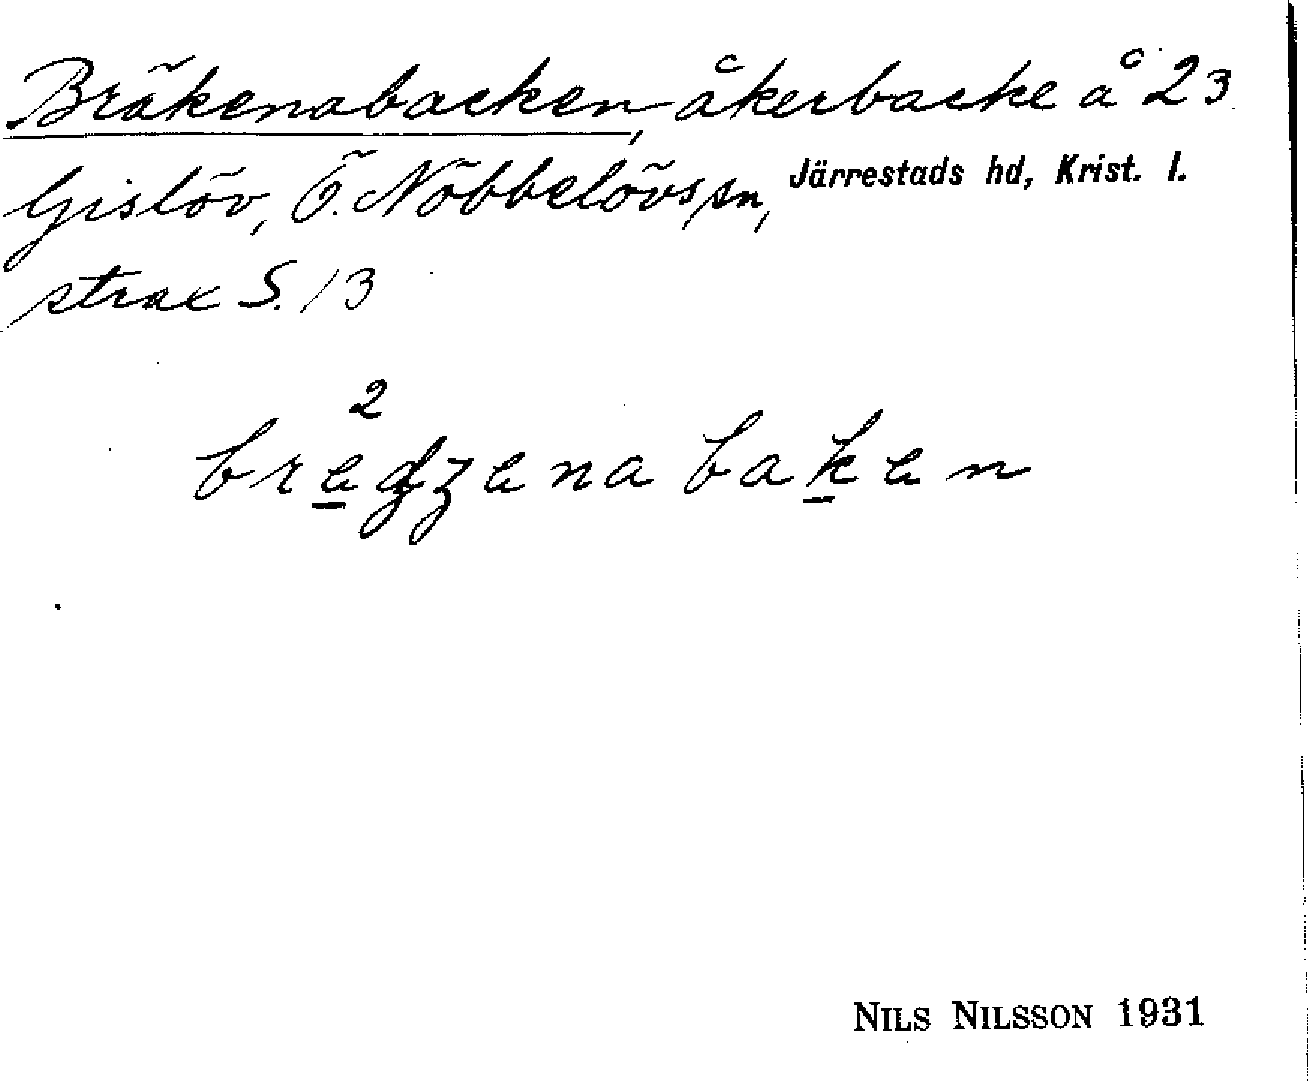 Bräkenabacken, åkerbacke å 23
Gislöv, Ö. Nöbbelövs sn, Järrestads hd, Krist. l.
strax S. 13
2
bregzena baken
NILS NILSSON 1931